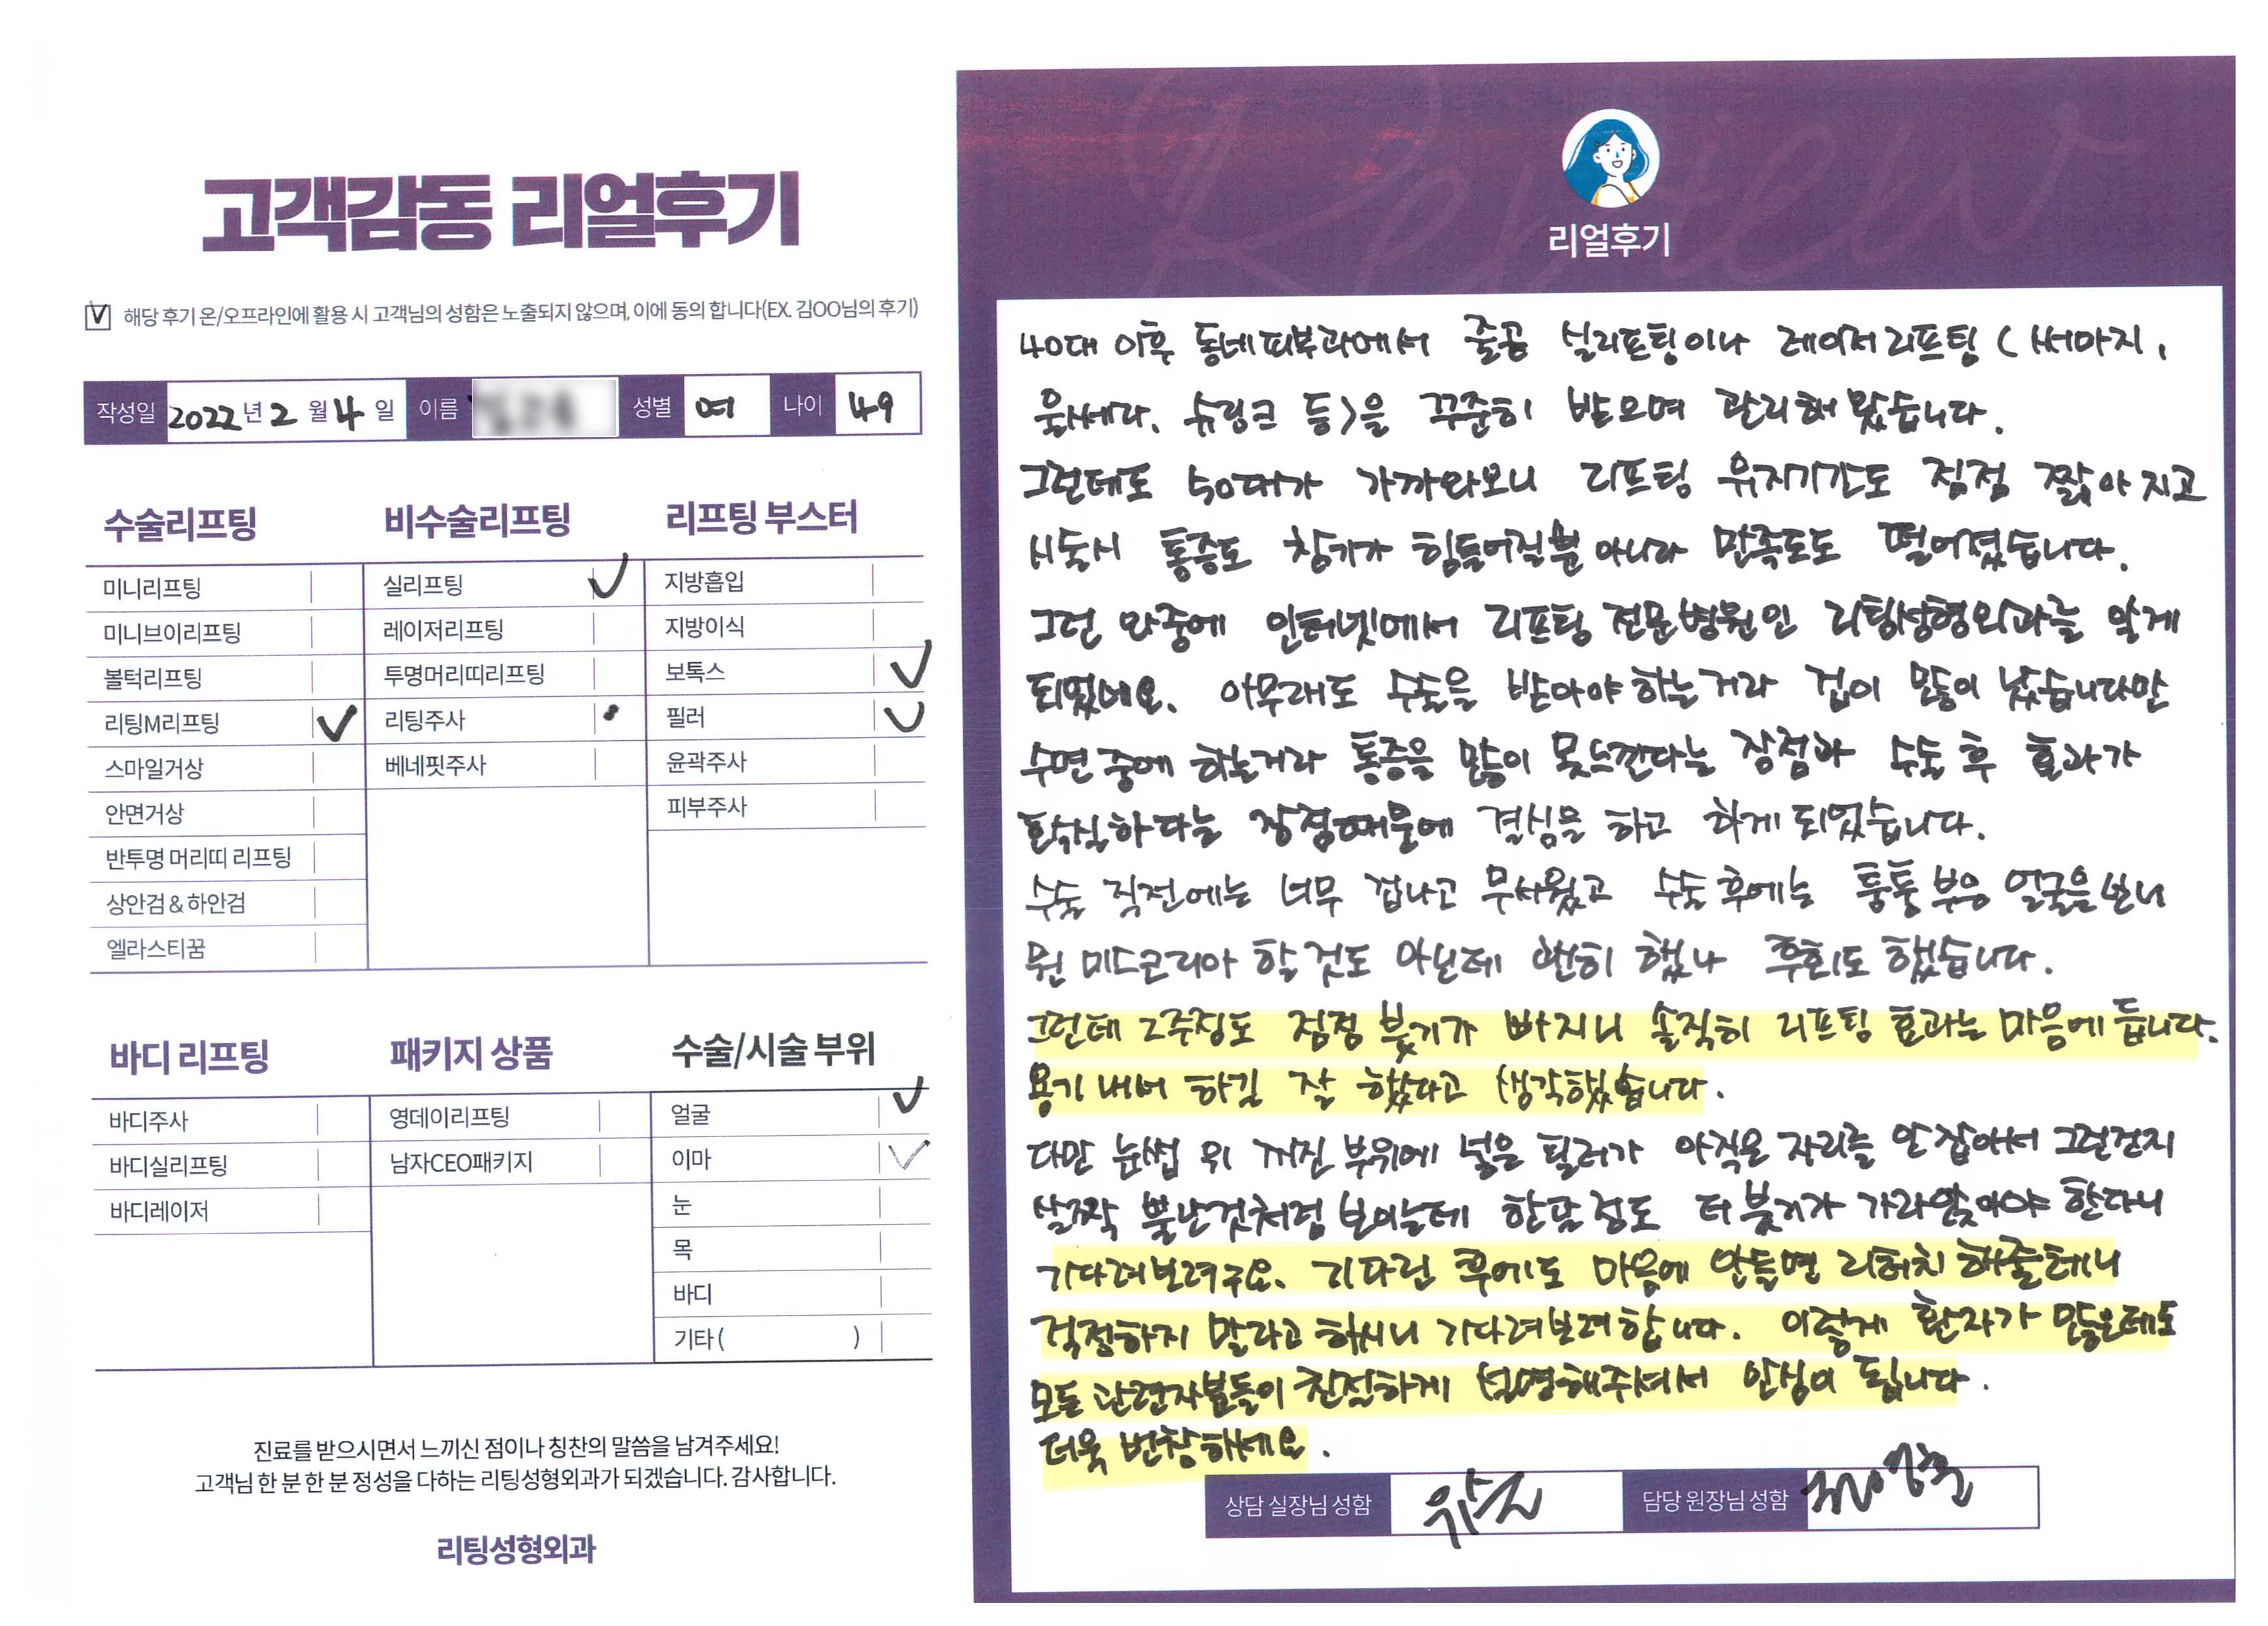 고객감동 리얼후기
V 해당 후기 온/오프라인에 활용 시 고객님의 성함은 노출되지 않으며, 이에 동의 합니다(EX. 김OO님의 후기)
작성일 2022년 2월 4일 이름 성별 여 나이 49
수술리프팅
미니리프팅
미니브이리프팅
볼턱리프팅
리팅M리프팅 ✓
스마일거상
안면거상
반투명 머리띠 리프팅
상안검 & 하안검
엘라스티꿈
비수술리프팅
실리프팅 ✓
레이저리프팅
투명머리띠리프팅
리팅주사
베네핏주사
리프팅 부스터
지방흡입
지방이식
보톡스 ✓
필러 ✓
윤곽주사
피부주사
바디 리프팅
바디주사
바디실리프팅
바디레이저
패키지 상품
영데이리프팅
남자CEO패키지
수술/시술 부위
얼굴 ✓
이마 ✓
눈
목
바디
기타 ( )
진료를 받으시면서 느끼신 점이나 칭찬의 말씀을 남겨주세요!
고객님 한 분 한 분 정성을 다하는 리팅성형외과가 되겠습니다. 감사합니다.
리팅성형외과
Review
리얼후기
40대 이후 동네피부과에서 줄곧 실리프팅이나 레이저리프팅 (써마지,
울쎄라, 슈링크 등)을 꾸준히 받으며 관리해 왔습니다.
그런데도 50대가 가까와보니 리프팅 유지기간도 점점 짧아지고
시술시 통증도 참기가 힘들어질뿐 아니라 만족도도 떨어졌습니다.
그런 와중에 인터넷에서 리프팅 전문병원인 리팅성형외과를 알게
되었네요. 아무래도 수술을 받아야하는거라 겁이 많이 났습니다만
수면 중에 하는거라 통증을 많이 못느낀다는 장점과 수술 후 효과가
확실하다는 장점때문에 결심을 하고 하게되었습니다.
수술 직전에는 너무 겁나고 무서웠고 수술후에는 퉁퉁 부은 얼굴을 보니
뭔 미스코리아 할 것도 아닌데 괜히 했나 후회도 했습니다.
그런데 2주정도 점점 붓기가 빠지니 솔직히 리프팅 효과는 마음에 듭니다.
용기 내서 하길 잘 했다고 생각했습니다.
다만 눈썹 위 꺼진 부위에 넣은 필러가 아직은 자리를 안잡아서 그런건지
살짝 뿔난것처럼 보이는데 한달정도 더 붓기가 가라앉아야 한다니
기다려보려구요. 기다린 후에도 마음에 안들면 리터치 해줄테니
걱정하지 말라고 하시니 기다려보려합니다. 이렇게 환자가 많은데도
모든 관련자분들이 친절하게 설명해주셔서 안심이 됩니다.
더욱 번창하세요.
상담 실장님 성함 담당 원장님 성함